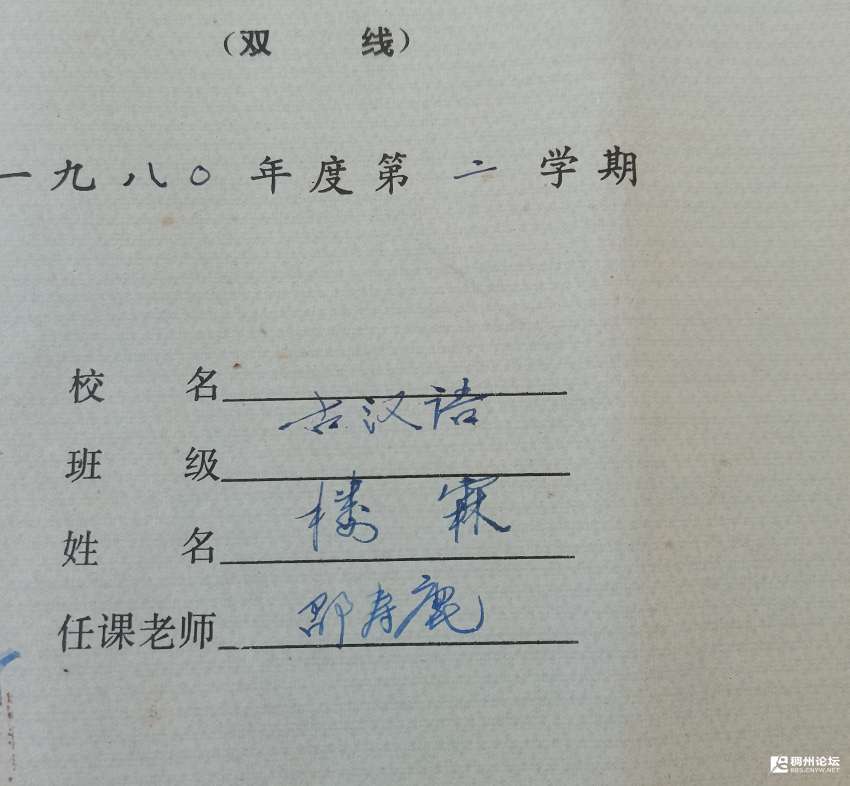 （双 线）
一九八〇年度第二学期
校 名
古汉语
班 级
姓 名 楼霖
任课老师 邵寿鹿
稠州论坛
BBS.CNYW.NET